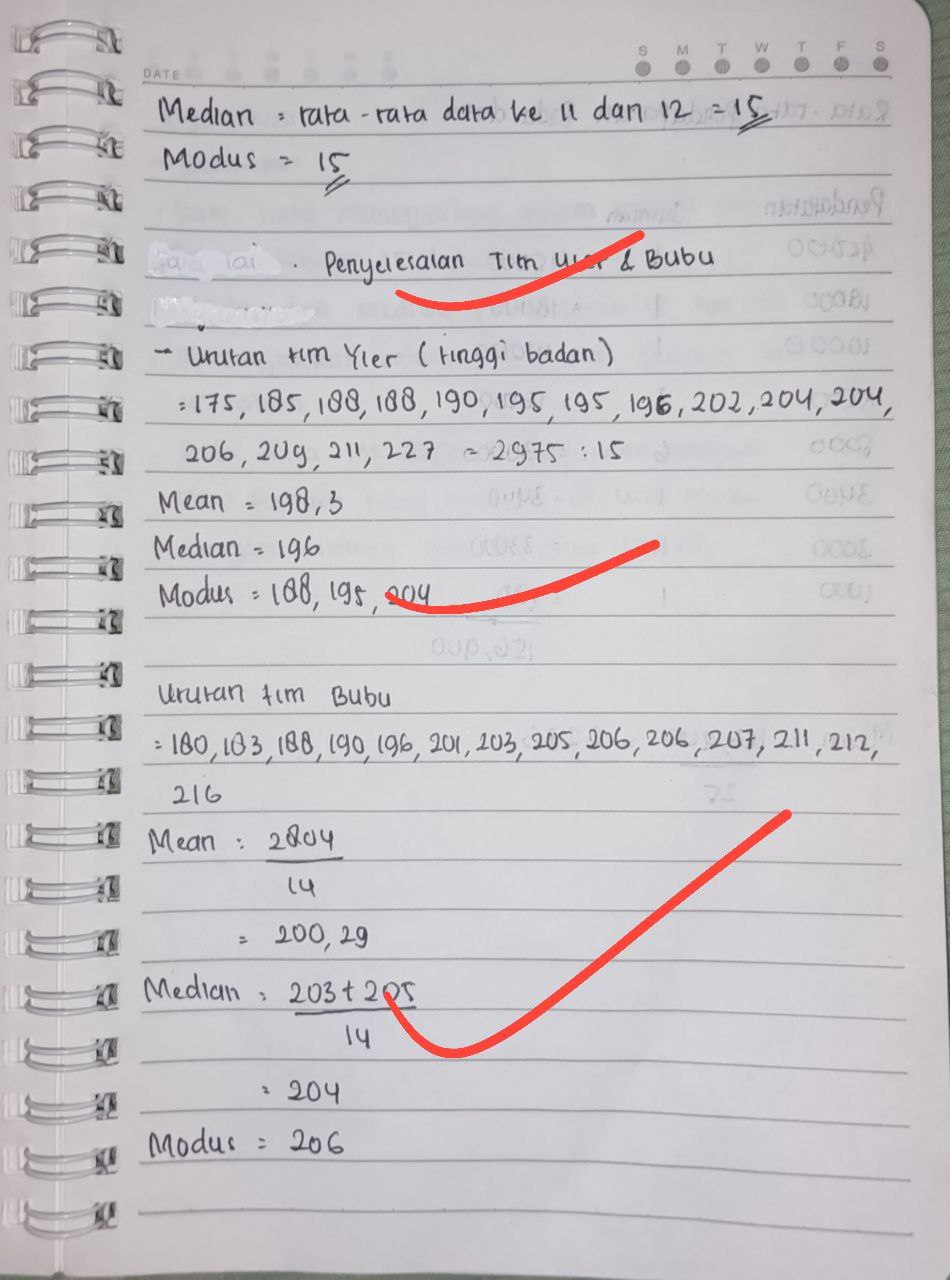 DATE S M T W T F S
Median = rata-rata data ke 11 dan 12 = 15
Modus = 15
Penyelesaian Tim Uler & Bubu
- Urutan tim Yler (tinggi badan)
= 175, 185, 188, 188, 190, 195, 195, 196, 202, 204, 204,
206, 209, 211, 227 = 2975 : 15
Mean = 198,3
Median = 196
Modus = 188, 195, 204
Urutan tim Bubu
= 180, 183, 188, 190, 196, 201, 203, 205, 206, 206, 207, 211, 212,
216
Mean : 2804
14
= 200,29
Median : 203 + 205
14
= 204
Modus = 206